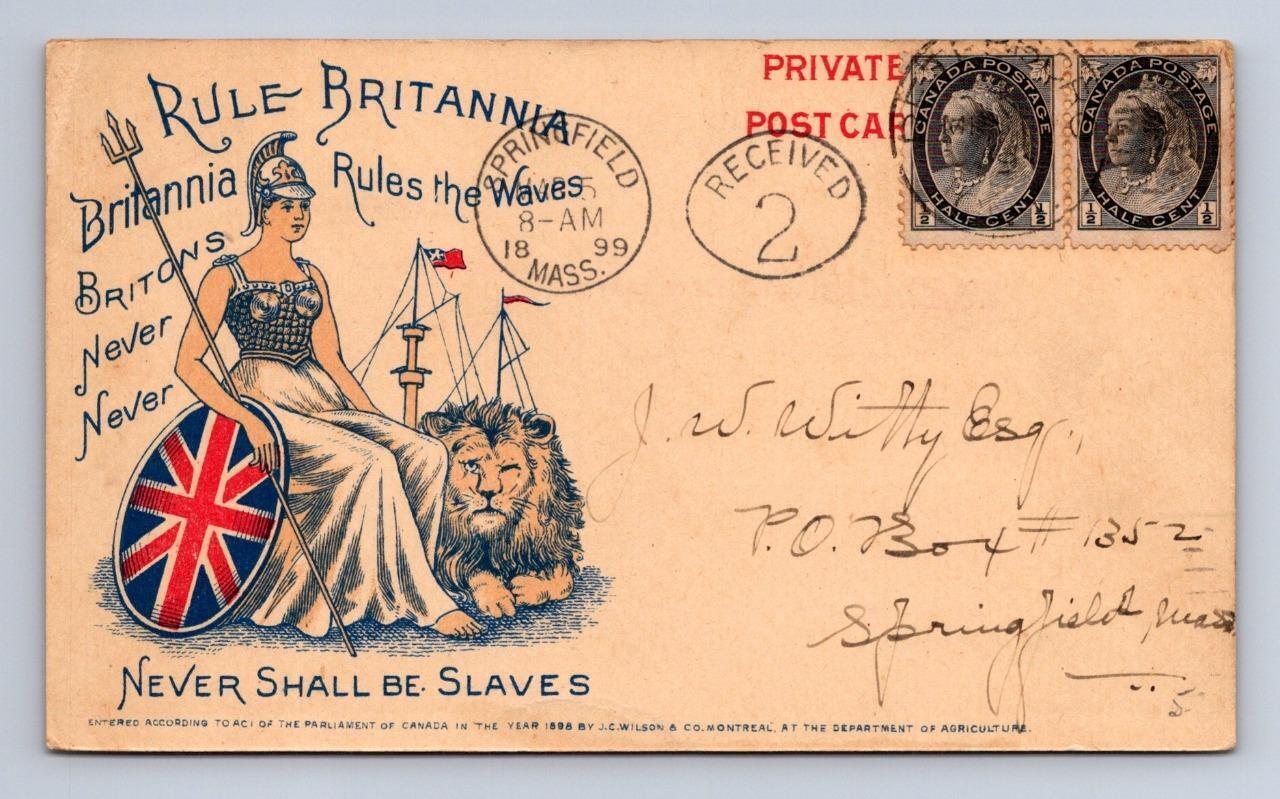 RULE BRITANNIA
Britannia Rules the Waves
BRITONS
Never
Never
NEVER SHALL BE SLAVES
ENTERED ACCORDING TO ACT OF THE PARLIAMENT OF CANADA IN THE YEAR 1898 BY J.C.WILSON & CO. MONTREAL, AT THE DEPARTMENT OF AGRICULTURE.
SPRINGFIELD
5
8-AM
18 99
MASS.
RECEIVED
2
PRIVATE
POST CAR
CANADA POSTAGE
½ HALF CENT ½
CANADA POSTAGE
½ HALF CENT ½
J. W. Witty Esq.,
P.O. Box # 1352
Springfield, Mass
5